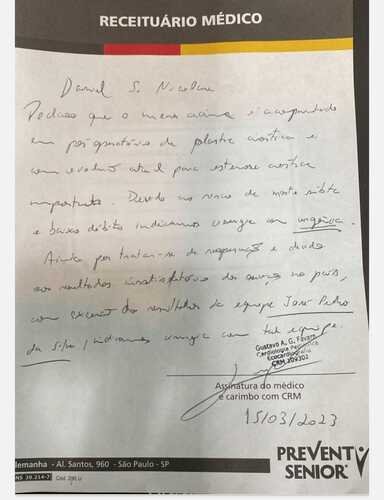 RECEITUÁRIO MÉDICO
Daniel S. Nicolau
Declaro que o menor acima é acompanhado
em pós operatório de plastia aórtica e
com evolução atual para estenose aórtica
importante. Devido ao risco de morte súbita
e baixo débito indicamos cirurgia com urgência.
Ainda por tratar-se de reoperação e devido
aos resultados insatisfatórios dos serviços no país,
com exceção dos resultados da equipe José Pedro
da Silva, indicamos cirurgia com tal equipe.
Gustavo A. G. Fávaro
Cardiologia Pediátrica
Ecocardiografia
CRM
Assinatura do médico
e carimbo com CRM
15/03/2023
lemanha - Al. Santos, 960 - São Paulo - SP
PREVENT
SENIOR